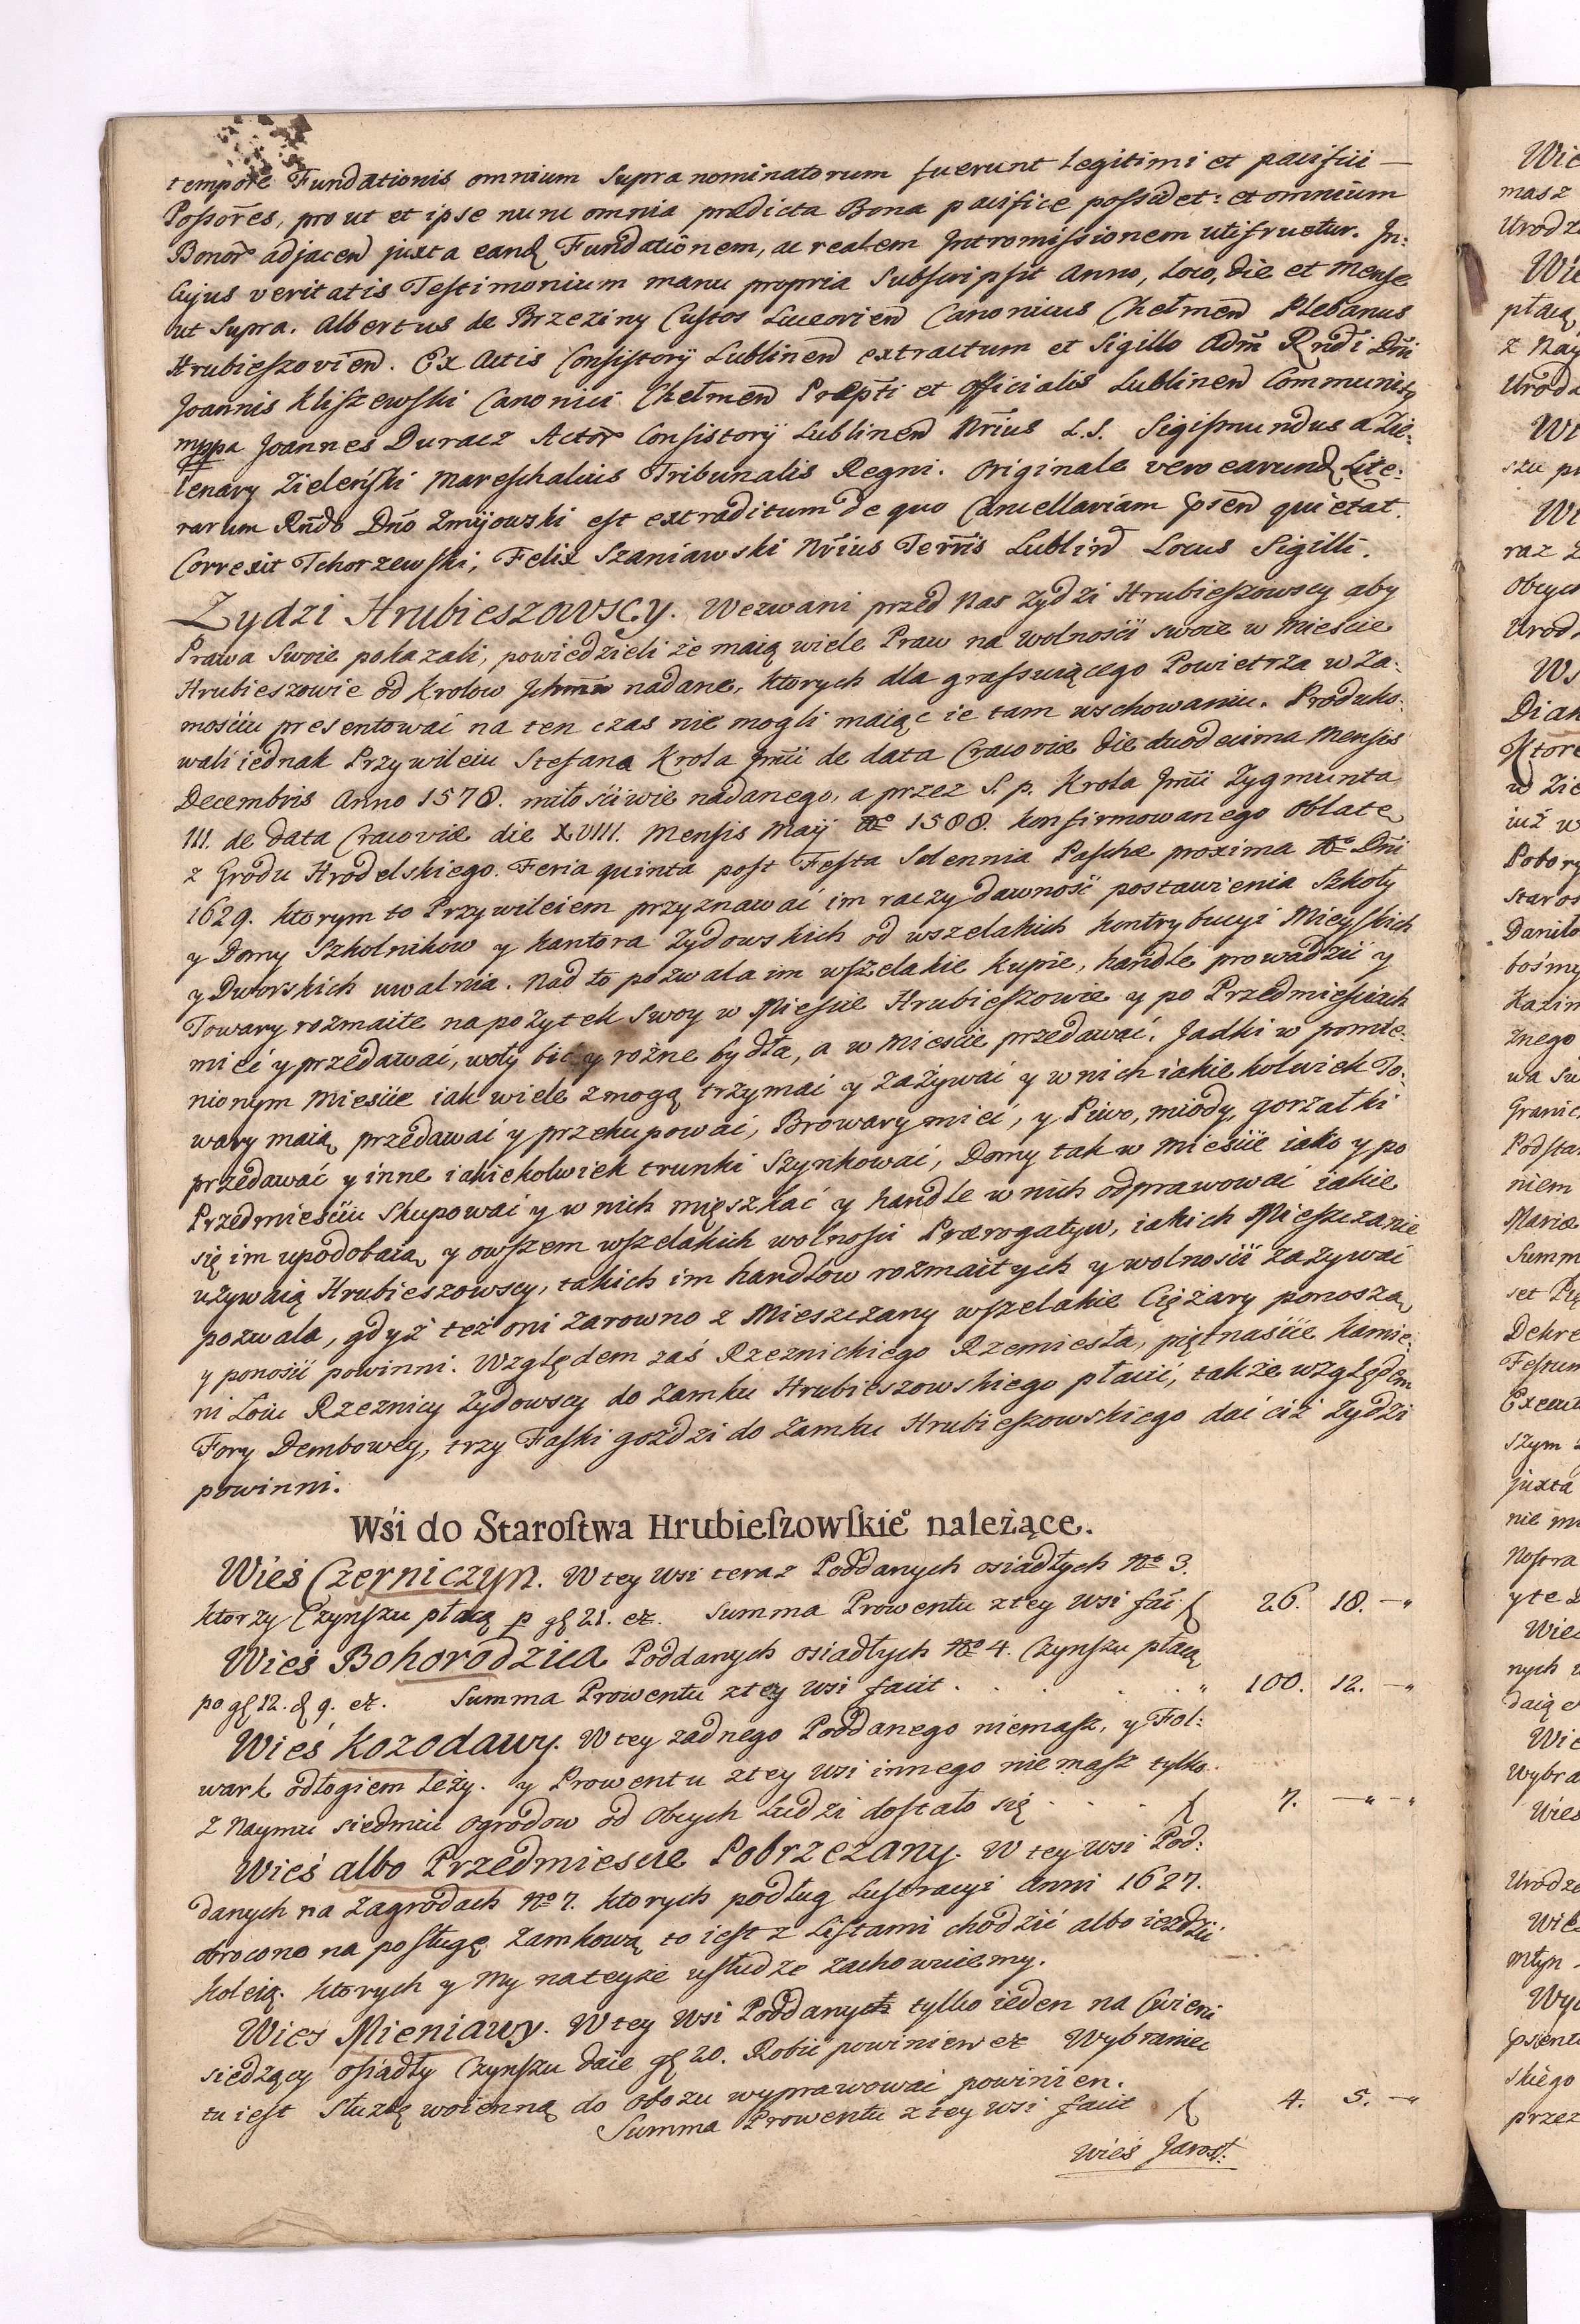 tempore Fundationis omnium Supra nominatorum fuerunt Legitimi et pacifici —
Possores, pro ut et ipse nunc omnia prædicta Bona pacifice possidet: et omnium
Bonor adjacen juxta eand Fundationem, ac realem Intromissionem utifruetur. In:
Cujus veritatis Testimonium manu propria Subscripsit Anno, Loco, Die et Mense
ut Supra. Albertus de Brzeziny Custos Luceorien Canonicus Chełmen Plebanus
Hrubieszovien. Ex Actis Consistorÿ Lublinen extractum et Sigillo Adm Rndi Dni
Joannis Kliszewski Canonici Chełmen Præpti et Officialis Lublinen Communit
mppa Joannes Duracz Actor Consistorÿ Lublinen Nrius L.S. Sigismundus a Zie:
lenary Zieleński Mareschalcus Tribunalis Regni. Originale vero earund Lite:
rarum Rndo Dno Zmijowski est extraditum de quo Cancellariam psen quietat.
Correxit Tchorzewski, Felix Szaniawski Nrius Terris Lublin Locus Sigilli.
Zydzi Hrubieszowscy. Wezwani przed Nas Zydzi Hrubieszowscy aby
Prawa Swoie pokazali, powiedzieli że maią wiele Praw na wolności swoie w Mieście
Hrubieszowie od Krolow Jchmw nadane, ktorych dla grassuiącego Powietrza w Za:
mościu presentować na ten czas nie mogli maiąc ie tam w schowaniu. Produko:
wali iednak Przywileiu Stefana Krola Jmći de data Cracoviæ die duodecima Mensis
Decembris Anno 1578. miłościwie nadanego, a przez S. p. Krola Jmći Zygmunta
III. de data Cracoviæ die XVIII. Mensis Maij Ao 1588. konfirmowanego oblatę
z Grodu Hrodelskiego. Feria quinta post Festa Solennia Paschæ proxima Ao Dni
1629. ktorym to Przywileiem przyznawać im raczy dawność postawienia Szkoły
y Domy Szkolnikow y kantora Zydowskich od wszelakich kontrybucyi Mieyskich
y Dworskich uwalnia. Nad to pozwala im wszelakie kupie, handle prowadzić y
Towary rozmaite na pożytek Swoy w Mieście Hrubieszowie y po Przedmieściach
mieć y przedawać, woły bić y rożne bydła, a w Mieście przedawać. Jadki w pomie:
nionym Mieście iak wiele zmogą trzymać y zażywać y w nich iakie kolwiek To:
wary maią, przedawać y przekupować, Browary mieć, y Piwo, miody, gorzałki
przedawać y inne iakiekolwiek trunki Szynkować, Domy tak w Mieście iako y po
Przedmieściu Skupować y w nich mięszkać y handle w nich odprawować iakie
się im upodobaią, y owszem wszelakich wolności Prærogatyw, iakich Mieszczanie
używaią Hrubieszowscy, takich im handlow rozmaitych y wolności zażywać
pozwala, gdyż też oni zarowno z Mieszczany wszelakie Ciężary ponoszą
y ponosić powinni. Względem zaś Rzeznickiego Rzemiesła, piętnaście kamie:
ni Łoiu Rzeznicy Zydowscy do Zamku Hrubieszowskiego płacić, także względem
Fory Dembowey, trzy Faski gozdzi do Zamku Hrubieszowskiego dać ciż Zydzi
powinni.
Wsi do Starostwa Hrubieszowskieo należące.
Wieś Czerniczyn. W tey Wsi teraz Poddanych osiadłych No 3.
ktorzy Czynszu płacą p gł 21. et. Summa Prowentu z tey Wsi fać ƒ 26. 18. —"
Wieś Bohorodzica Poddanych osiadłych No 4. Czynszu płacą
po gł 12. ƒ 9. et. Summa Prowentu z tey Wsi facit . . . . . " 100. 12. —"
Wieś Kozodawy. W tey żadnego Poddanego niemasz, y Fol:
wark odłogiem leży. y Prowentu z tey Wsi innego nie masz tylko
z Naymu siedmiu ogrodow od Obcych Ludzi dostało się . . . ƒ 7. —"—"
Wieś albo Przedmieście Pobrzezany. W tey Wsi Pod:
danych na Zagrodach No 7. ktorych podług Lustracyi Anni 1627.
obrocono na posługę Zamkową, to iest z Listami chodzić albo ieździć
koleią. ktorych y My na teyże usłudze zachowuiemy.
Wieś Mieniawy. W tey Wsi Poddanych tylko ieden na Cwierci
siedzący osiadły Czynszu daie gł 20. Robić powinien et Wybraniec
tu iest Służę woienną do obozu wyprawować powinien.
Summa Prowentu z tey wsi facit ƒ 4. 5. —"
Wieś Jarosł: